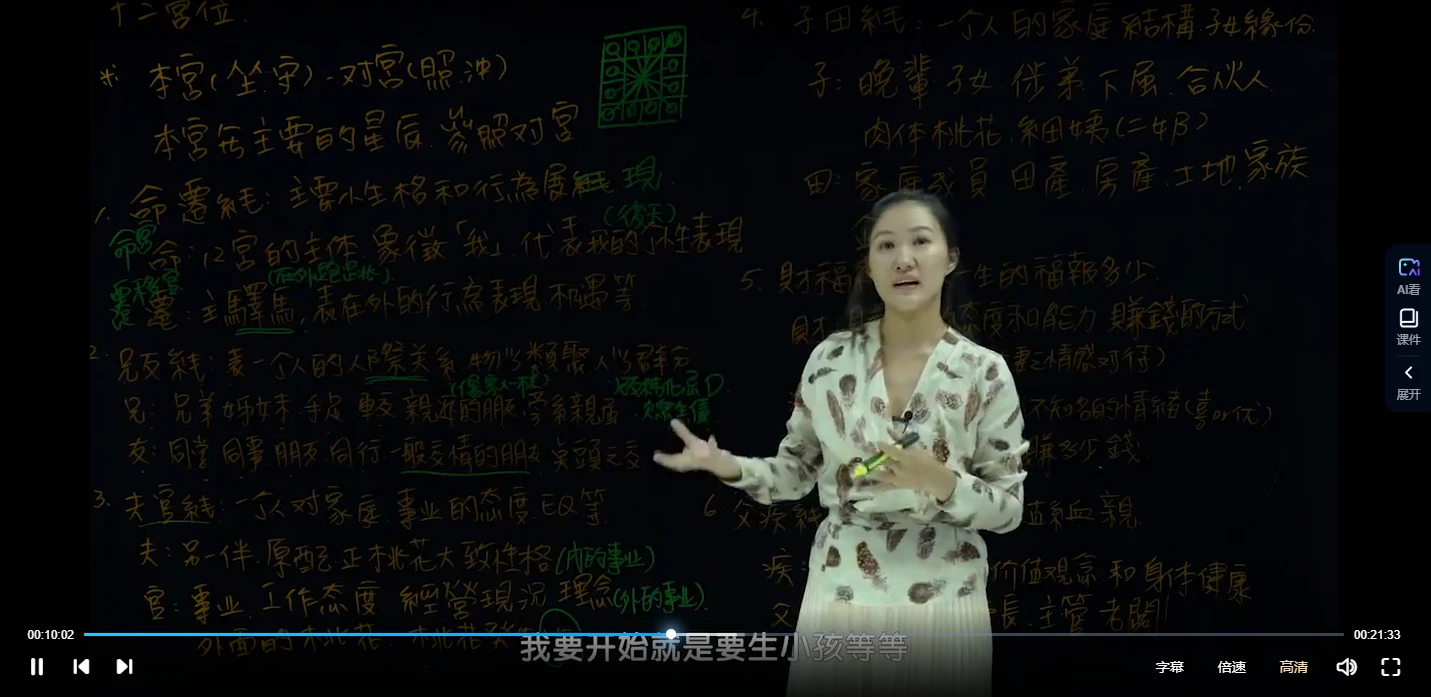 十二宮位
※ 本宮(坐.守)-对宮(照.沖)
本宮无主要的星辰.參照对宮
1. 命遷線:主要以性格和行為展現.
(後天)
命宮 命:12宮的主体.象徵「我」.代表我的个性表現
(在外跑出北).
遷移宮 遷:主驛馬,表在外的行為表現.和遇等.
2. 兄友線:表一个人的人際关系.物以類聚.人以群分
兄:兄弟姊妹.手足.較親近的朋友.旁系親屬
友:同学.同事.朋友.同行.一般交情的朋友.点頭之交
3. 夫官線:一个人对家庭.事业的态度.EQ等.
夫:另一伴.原配.正桃花大致性格(內的事业)
官:事业.工作态度.經營現況.理念(外的事业).
外面的桃花.桃花
4. 子田線:一个人的家庭結構.子女緣份.
子:晚輩.子女.徒弟.下属.合伙人.
肉体桃花.細姨(二奶)
田:家庭成員.田產.房產.土地.家族
5. 財福 生的福報多少.
財 态度和能力.賺錢的方式
情感对待)
不知名的情緒(喜or忧)
賺多少錢.
6. 父疾線 血親.
疾: 价值观念和身体健康
父 長.主管.老闆
我要开始就是要生小孩等等
AI看
课件
展开
00:10:02
00:21:33
字幕 倍速 高清